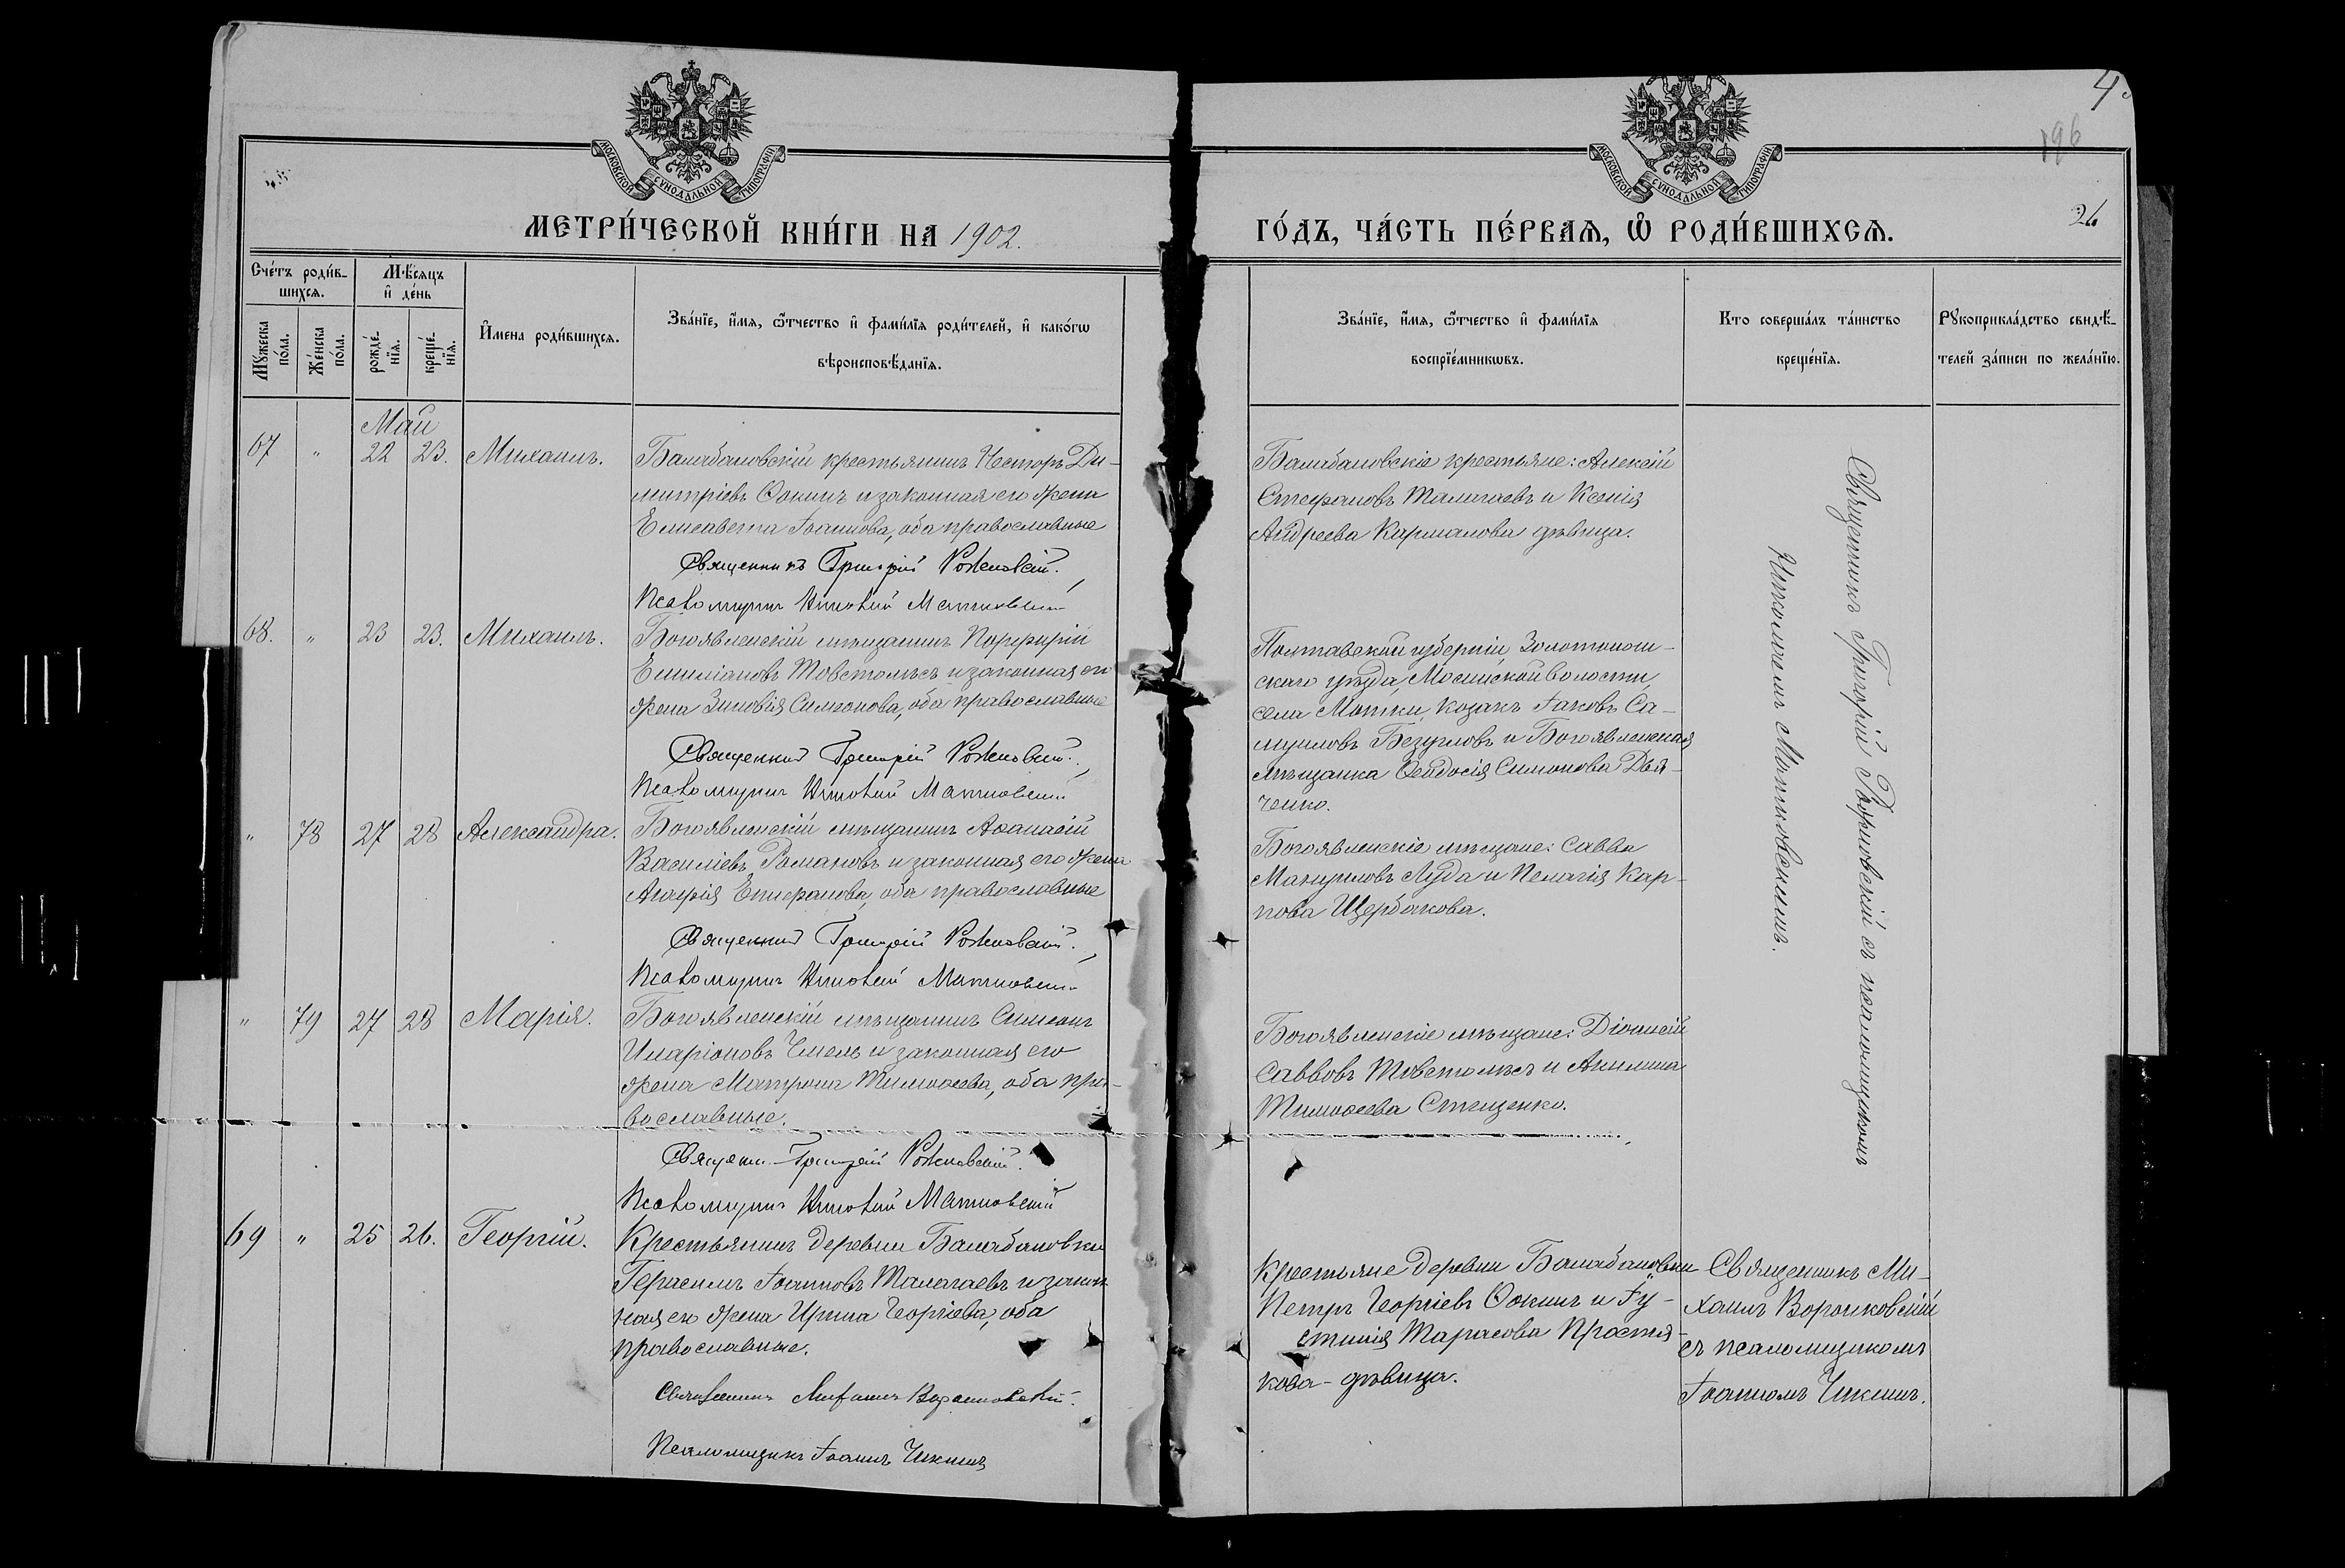 МОСКОВСКОЙ СѴНОДАЛЬНОЙ ТИПОГРАФІИ
МОСКОВСКОЙ СѴНОДАЛЬНОЙ ТИПОГРАФІИ
196
26
МЕТРИ́ЧЕСКОЙ КНИ́ГИ НА 1902.
ГО́ДЪ, ЧА́СТЬ ПЕ́РВАЯ, Ѡ РОДИ́ВШИХСЯ.
Сче́тъ роди́в-
шихся.
Мѣ́сяцъ
и де́нь
Мꙋ́жеска
по́ла.
Же́нска
по́ла.
рожде́-
нїя.
креще́-
нїя.
И́мена роди́вшихся.
Зва́нїе, и́мя, ѻ́тчество и фами́лїя роди́телей, и како́гѡ
вѣроисповѣ́данїя.
Зва́нїе, и́мя, ѻ́тчество и фами́лїя
воспрїе́мникѡвъ.
Кто соверша́лъ та́инство
креще́нїя.
Рꙋкоприкла́дство свидѣ́-
телей за́писи по жела́нїю.
Май
67 " 22 23. Михаилъ.
Балабановскій крестьянинъ Несторъ Ди-
митріевъ Ѳокинъ и законная его жена
Елисавета Іоаннова, оба православные
Священникъ Григорій
Псаломщикъ
Балабановскіе крестьяне: Алексій
Стефановъ Талагаевъ и Ксенія
Андреева Кармалова дѣвица.
Священникъ Григорій съ псаломщикомъ
68. " 23 23. Михаилъ.
Богоявленскій мѣщанинъ Порфирій
Емиліановъ Товстолѣсъ и законная его
жена Зиновія Симеонова, оба православные
Священник Григорій
Псаломщикъ
Полтавской губерніи, Золотонош-
скаго уѣзда, волости,
села козакъ Іаковъ Са-
муиловъ и Богоявленская
мѣщанка Ѳеодосія Симонова Дья-
ченко.
" 78 27 28 Александра.
Богоявленскій мѣщанинъ Аѳанасій
Василіевъ Романовъ и законная его жена
Агафія Епифанова, оба православные
Священник Григорій
Псаломщикъ
Богоявленскіе мѣщане: Савва
Мануиловъ Луда и Пелагія Кар-
пова Щербакова.
" 79 27 28 Марія.
Богоявленскій мѣщанинъ Симеонъ
Иларіоновъ Чмель и законная его
жена Матрона Тимоѳеева, оба пра-
вославные.
Священн. Григорій
Псаломщикъ
Богоявленскіе мѣщане: Діонисій
Саввовъ Товстолѣсъ и Акилина
Тимоѳеева Стеценко.
69 " 25 26. Георгій.
Крестьянинъ деревни Балабановки
Герасимъ Іоанновъ Талагаевъ и закон
ная его жена Ирина Георгіева, оба
православные.
Священникъ Михаилъ Воронковскій.
Псаломщикъ Іоаннъ Чикинъ
Крестьяне деревни Балабановки
Петръ Георгіевъ Ѳокинъ и Іу-
стинія Тарасова Простя-
кова - дѣвица.
Священникъ Ми-
хаилъ Воронковскій
съ псаломщикомъ
Іоанномъ Чикинъ.